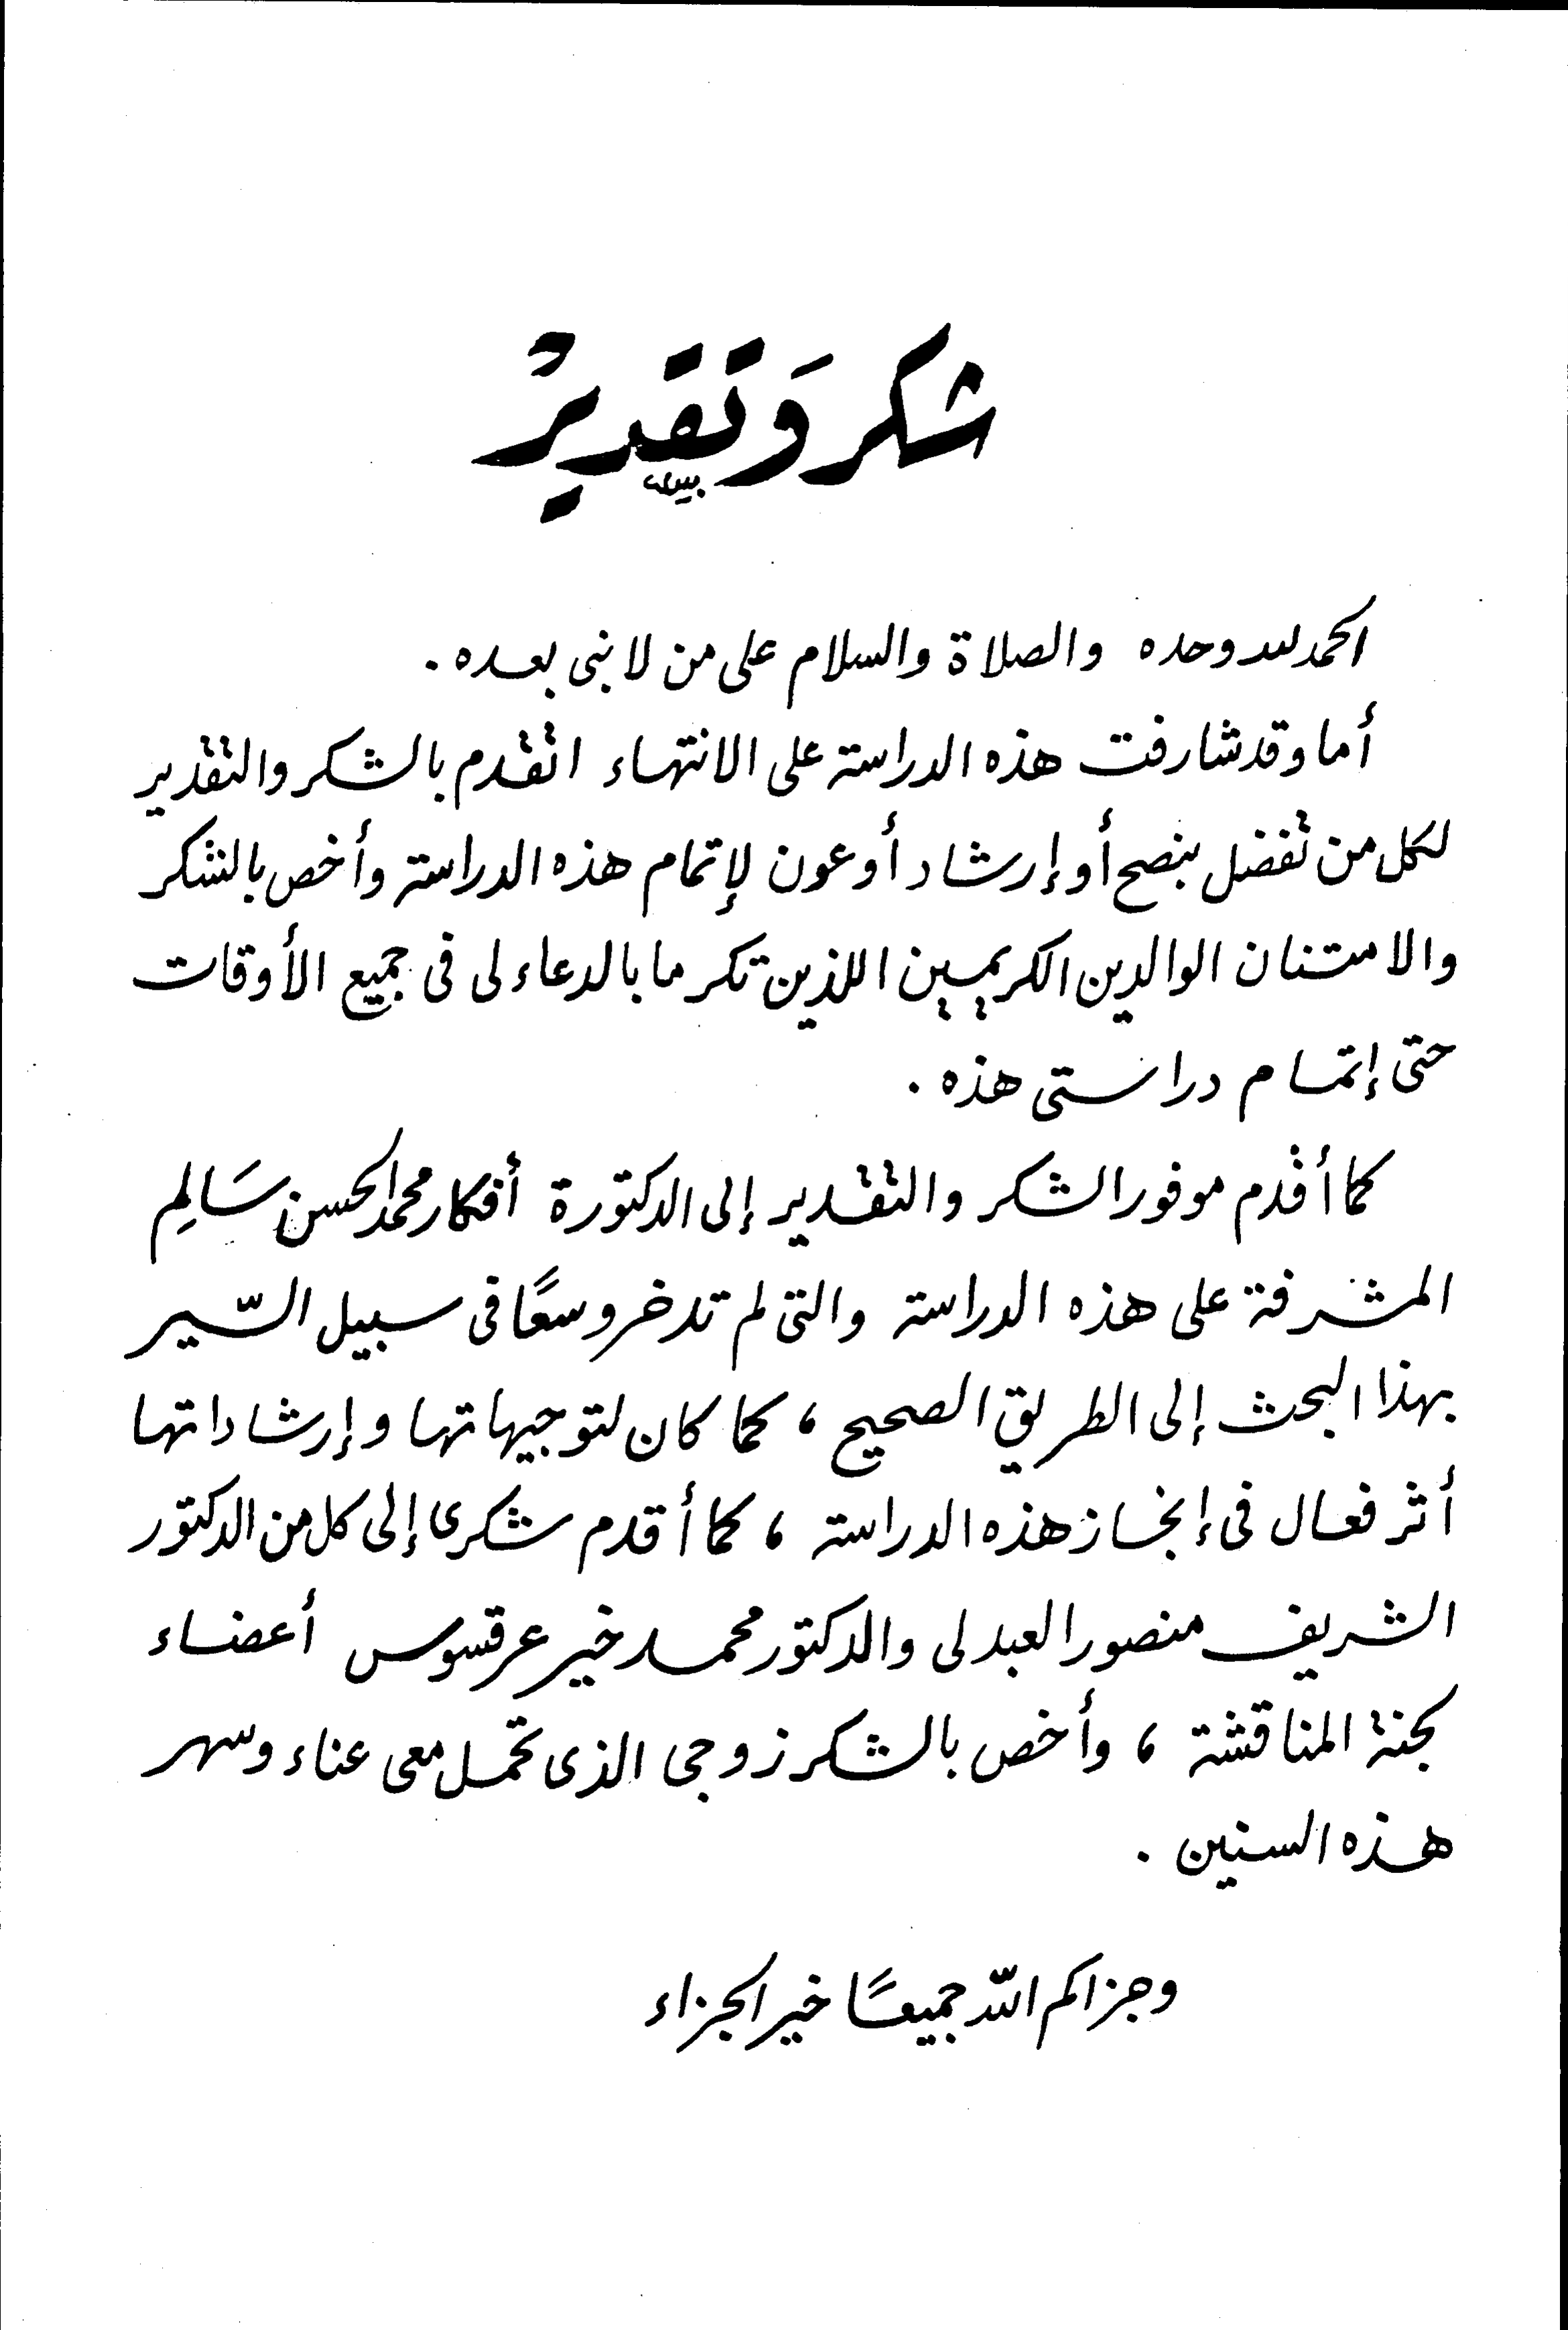 شكر وَتقديرْ
الحمد لله وحده والصلاة والسلام على من لا نبى بعده .
أما وقد شارفت هذه الدراسة على الانتهاء اتقدم بالشكر والتقدير
لكل من تفضل بنصح أو إرشاد أو عون لإتمام هذه الدراسة وأخص بالشكر
والامتنان الوالدين الكريمين اللذين تكرما بالدعاء لى فى جميع الأوقات
حتى إتمام دراستى هذه .
كما أقدم موفور الشكر والتقدير إلى الدكتورة أفكار محمد الحسن سَالِم
المشرفة على هذه الدراسة والتى لم تدخر وسعًا فى سبيل السّير
بهذا البحث إلى الطريق الصحيح ، كما كان لتوجيهاتها وإرشاداتها
أثر فعال فى إنجاز هذه الدراسة ، كما أقدم شكرى إلى كل من الدكتور
الشريف منصور العبدلى والدكتور محمد خير عرقسوس أعضاء
لجنة المناقشة ، وأخص بالشكر زوجى الذى تحمل معى عناء وسهر
هذه السنين .
وجزاكم اللّه جميعًا خير الجزاء